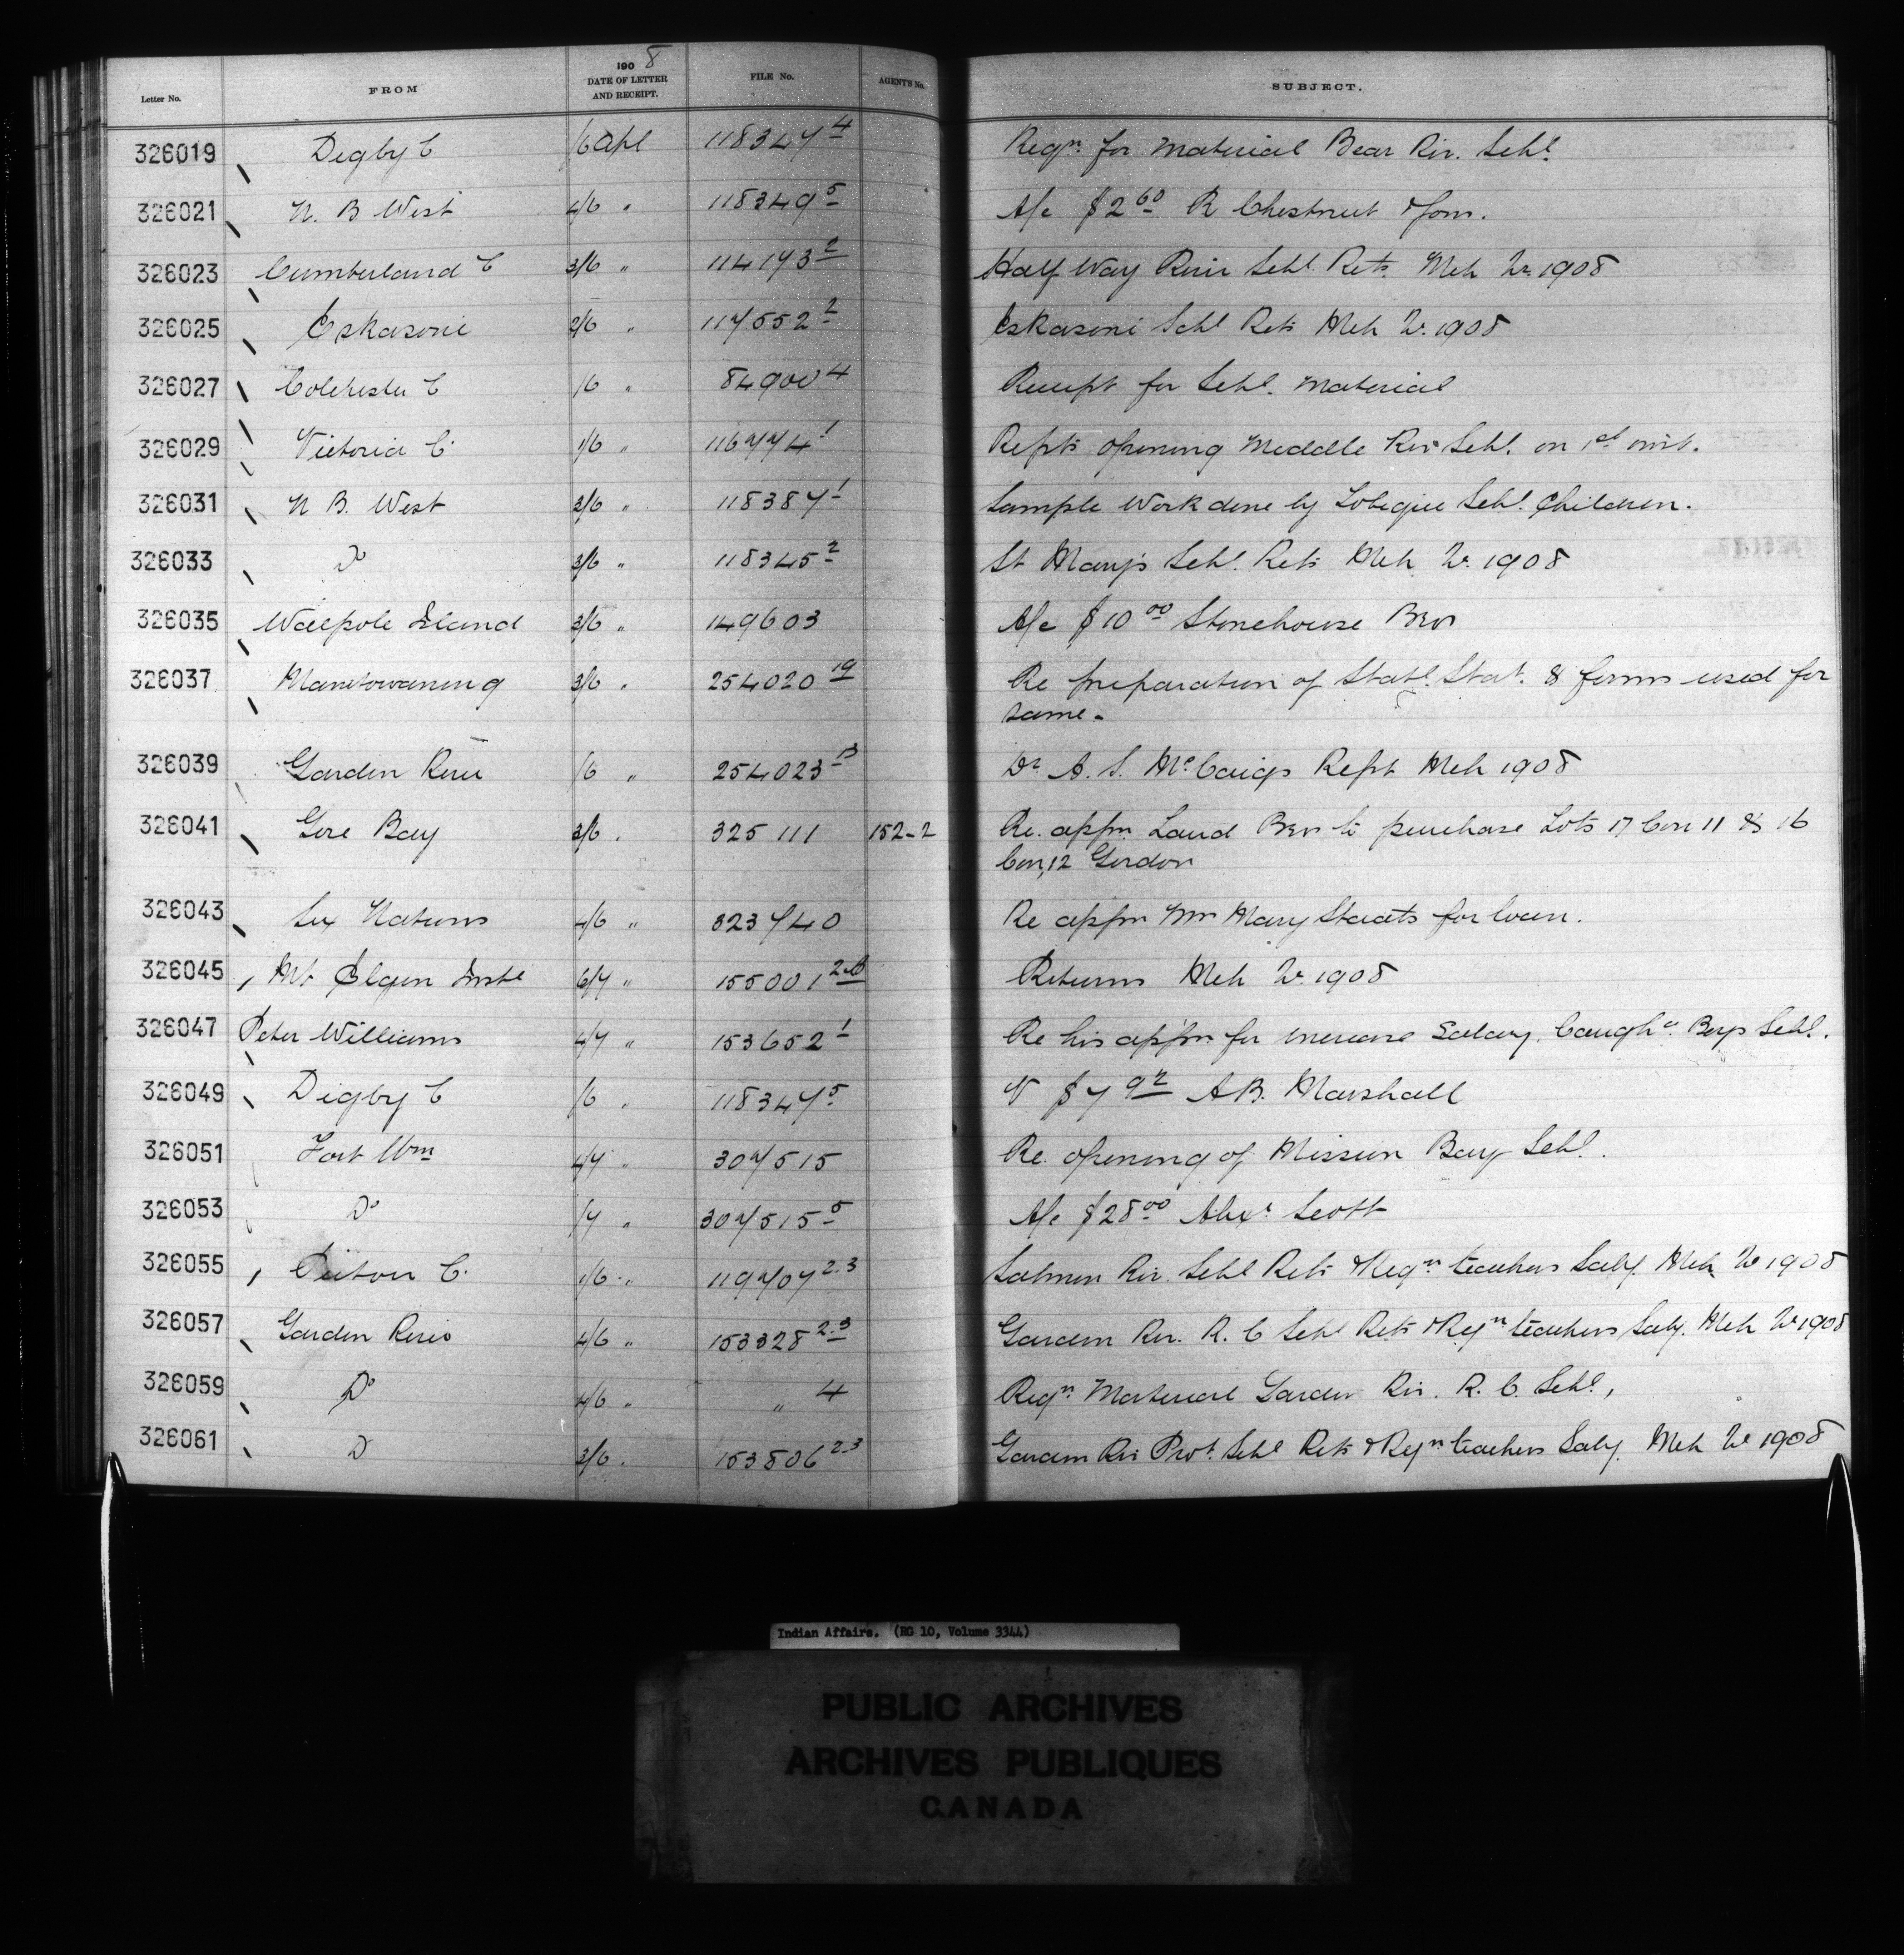 Letter No. FROM 1908 DATE OF LETTER AND RECEIPT. FILE No. AGENT'S No. SUBJECT.
326019 Digby C /6 Apl 118347 4 Reqn for Material Bear Riv. Schl.
326021 N. B West 4/6 " 118349 5 A/c $2 60 R Chestnut & Sons.
326023 Cumberland C 3/6 " 114193 2 Half Way River Schl. Rets. Mch Qr 1908
326025 Eskasoni 2/6 " 117552 2 Eskasoni Schl Rets Mch Qr. 1908
326027 Colchester C /6 " 84900 4 Receipt for Schl. Material
326029 Victoria C. 1/6 " 116774 1 Repts opening Middle Riv Schl. on 1st inst.
326031 N B. West 3/6 " 118387 1 Sample Work done by Tobique Schl. Children.
326033 Do 3/6 " 118345 2 St Mary's Schl. Rets Mch Qr. 1908
326035 Walpole Island 3/6 " 149603 A/c $10 00 Stonehouse Bros
326037 Manitowaning 3/6 " 254020 19 Re preparation of Statl. Stat. & forms used for
same.
326039 Garden River /6 " 254023 13 Dr A. S. McCaigs Rept Mch 1908
326041 Gore Bay 3/6 . 325111 152-2 Re. appn Laud Bros to purchase Lots 17 Con 11 & 16
Con, 12 Gordon
326043 Six Nations 4/6 " 323740 Re appn Mrs Mary Staats for loan.
326045 Mt Elgin Inste 6/7 " 155001 Returns Mch Qr. 1908
326047 Peter Williams 4/7 " 153652 1 Re his appn for increase Salary. Caugha. Boys Schl.
326049 Digby C /6 " 118347 5 V $7 92 A B. Marshall
326051 Fort Wm 4/7 " 307515 Re. opening of Mission Bay Schl.
326053 Do /7 " 307515 5 A/c $28 00 Alexr Scott
326055 Pictou C. 1/6 " 119707 2.3 Salmon Riv. Schl Rets & Reqn teachers Saly. Mch Qr 1908
326057 Garden River 4/6 " 153328 2.3 Garden Riv. R. C Schl Rets & Reqn teachers Saly. Mch Qr 1908
326059 Do 4/6 " " 4 Reqn. Material Garden Riv. R. C. Schl.,
326061 D 3/6 . 153506 2-3 Garden Riv Prot. Schl Rets & Reqn teachers Saly. Mch Qr 1908
Indian Affairs. (RG 10, Volume 3344)
PUBLIC ARCHIVES
ARCHIVES PUBLIQUES
CANADA